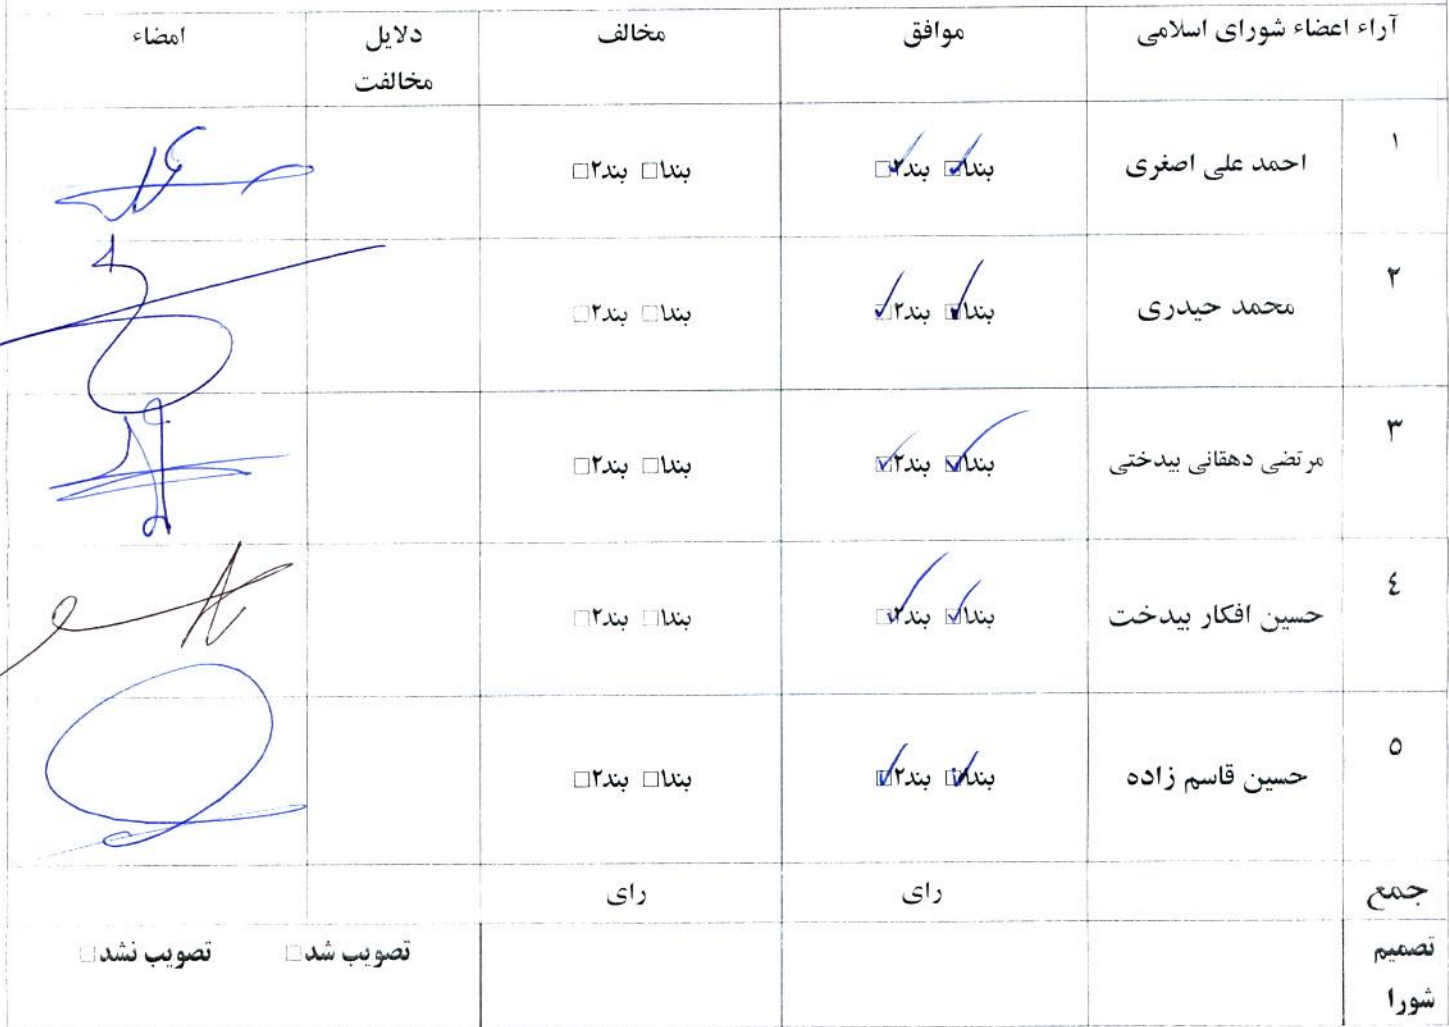 آراء اعضاء شورای اسلامی موافق مخالف دلایل مخالفت امضاء
۱ احمد علی اصغری بند۱☑ بند۲☑ بند۱□ بند۲□
۲ محمد حیدری بند۱☑ بند۲☑ بند۱□ بند۲□
۳ مرتضی دهقانی بیدختی بند۱☑ بند۲☑ بند۱□ بند۲□
٤ حسین افکار بیدخت بند۱☑ بند۲☑ بند۱□ بند۲□
٥ حسین قاسم زاده بند۱☑ بند۲☑ بند۱□ بند۲□
جمع رای رای
تصمیم شورا تصویب شد□ تصویب نشد□